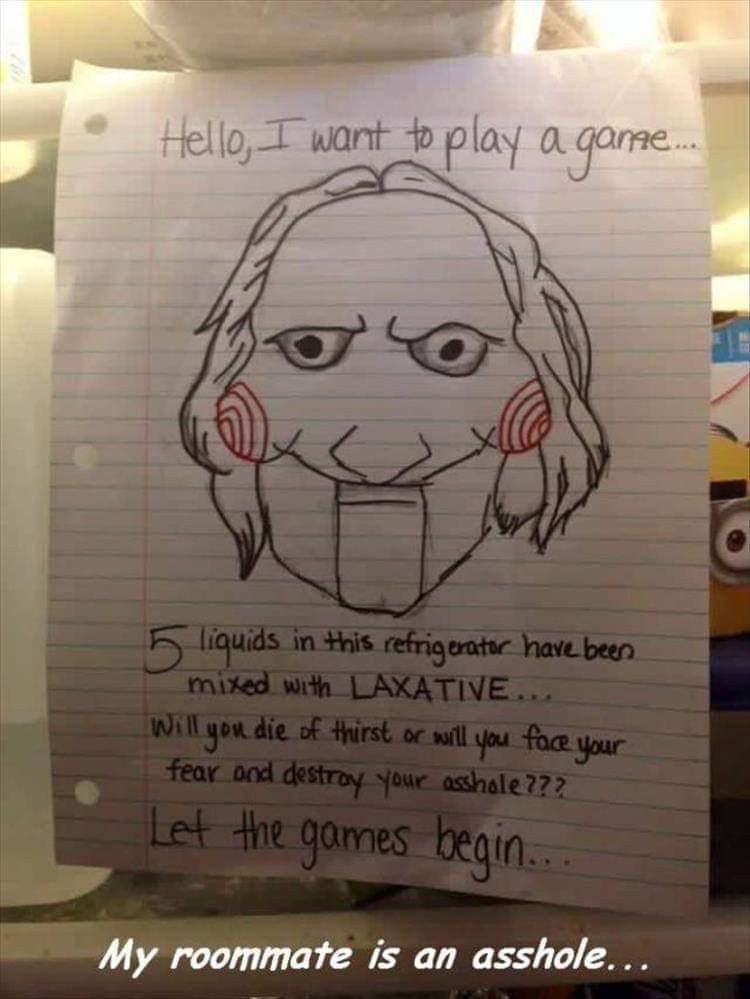 Hello, I want to play a game...
5 liquids in this refrigerator have been
mixed with LAXATIVE...
Will you die of thirst or will you face your
fear and destroy your asshole???
Let the games begin...
My roommate is an asshole...